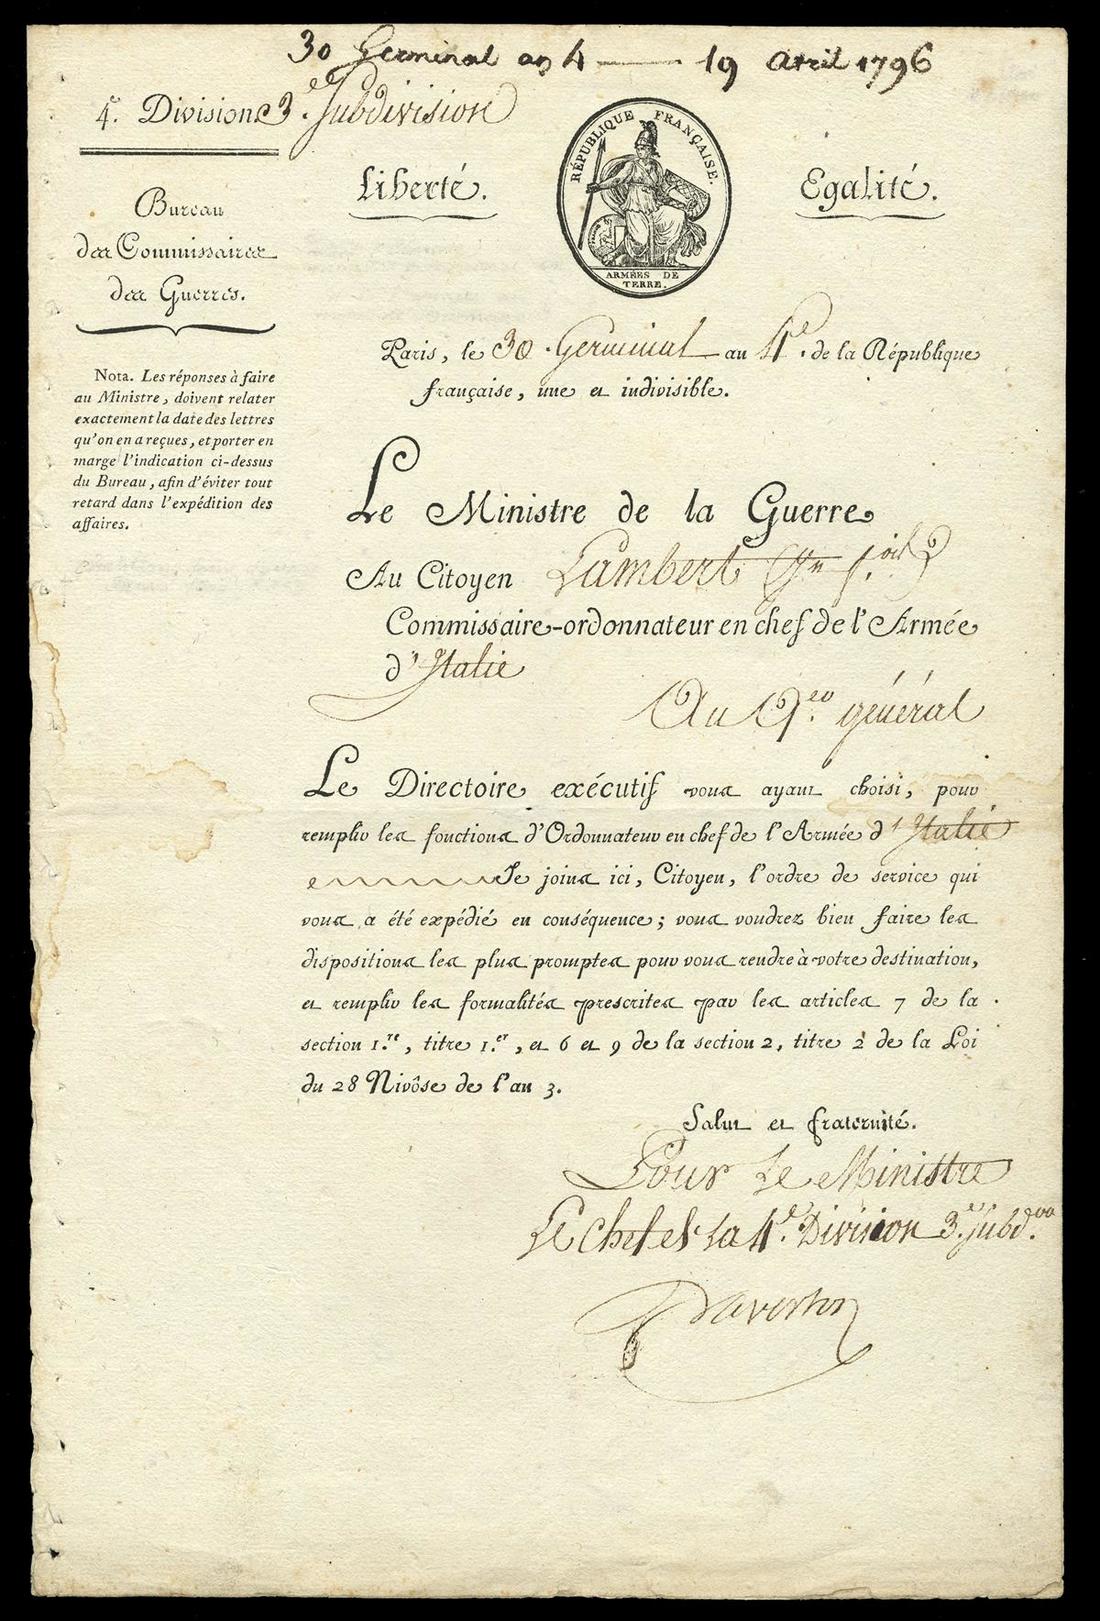 30 Germinal an 4 — 19 Avril 1796
4.e Division 3.e Subdivision
RÉPUBLIQUE FRANÇAISE.
ARMÉES DE
TERRE.
Liberté.
Egalité.
Bureau
des Commissaires
des Guerres.
Nota. Les réponses à faire
au Ministre, doivent relater
exactement la date des lettres
qu'on en a reçues, et porter en
marge l'indication ci-dessus
du Bureau, afin d'éviter tout
retard dans l'expédition des
affaires.
Paris, le 30 Germinal an 4.e de la République
française, une et indivisible.
Le Ministre de la Guerre
Au Citoyen Lambert
Commissaire-ordonnateur en chef de l'Armée
d'Italie
Au général
Le Directoire exécutif vous ayant choisi, pour
remplir les fonctions d'Ordonnateur en chef de l'Armée d'Italie
Je joins ici, Citoyen, l'ordre de service qui
vous a été expédié en conséquence; vous voudrez bien faire les
dispositions les plus promptes pour vous rendre à votre destination,
et remplir les formalités prescrites par les articles 7 de la
section 1.re, titre 1.er, et 6 et 9 de la section 2, titre 2 de la Loi
du 28 Nivôse de l'an 3.
Salut et fraternité.
Pour Le Ministre
Le Chef de la 4.e Division 3.e Subd.on